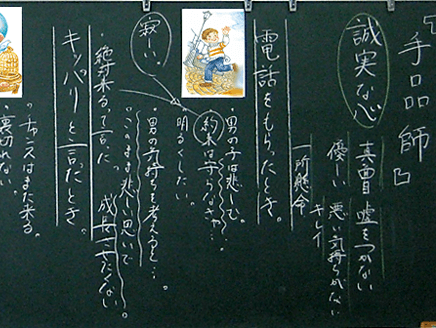 『手品師』
誠実な心
真面目 嘘をつかない
優しい 悪い気持ちがない
キレイ
一所懸命
電話をもらったとき。
・男の子は悲しむ。
約束は守らなきゃ…
明るくしたい。
・男の気持ちを考えると…。
このまま悲しい思いで
成長させたくない。
寂しい。
・絶対来るって言った
キッパリと言ったとき。
・チャンスはまた来る。
・裏切れない。